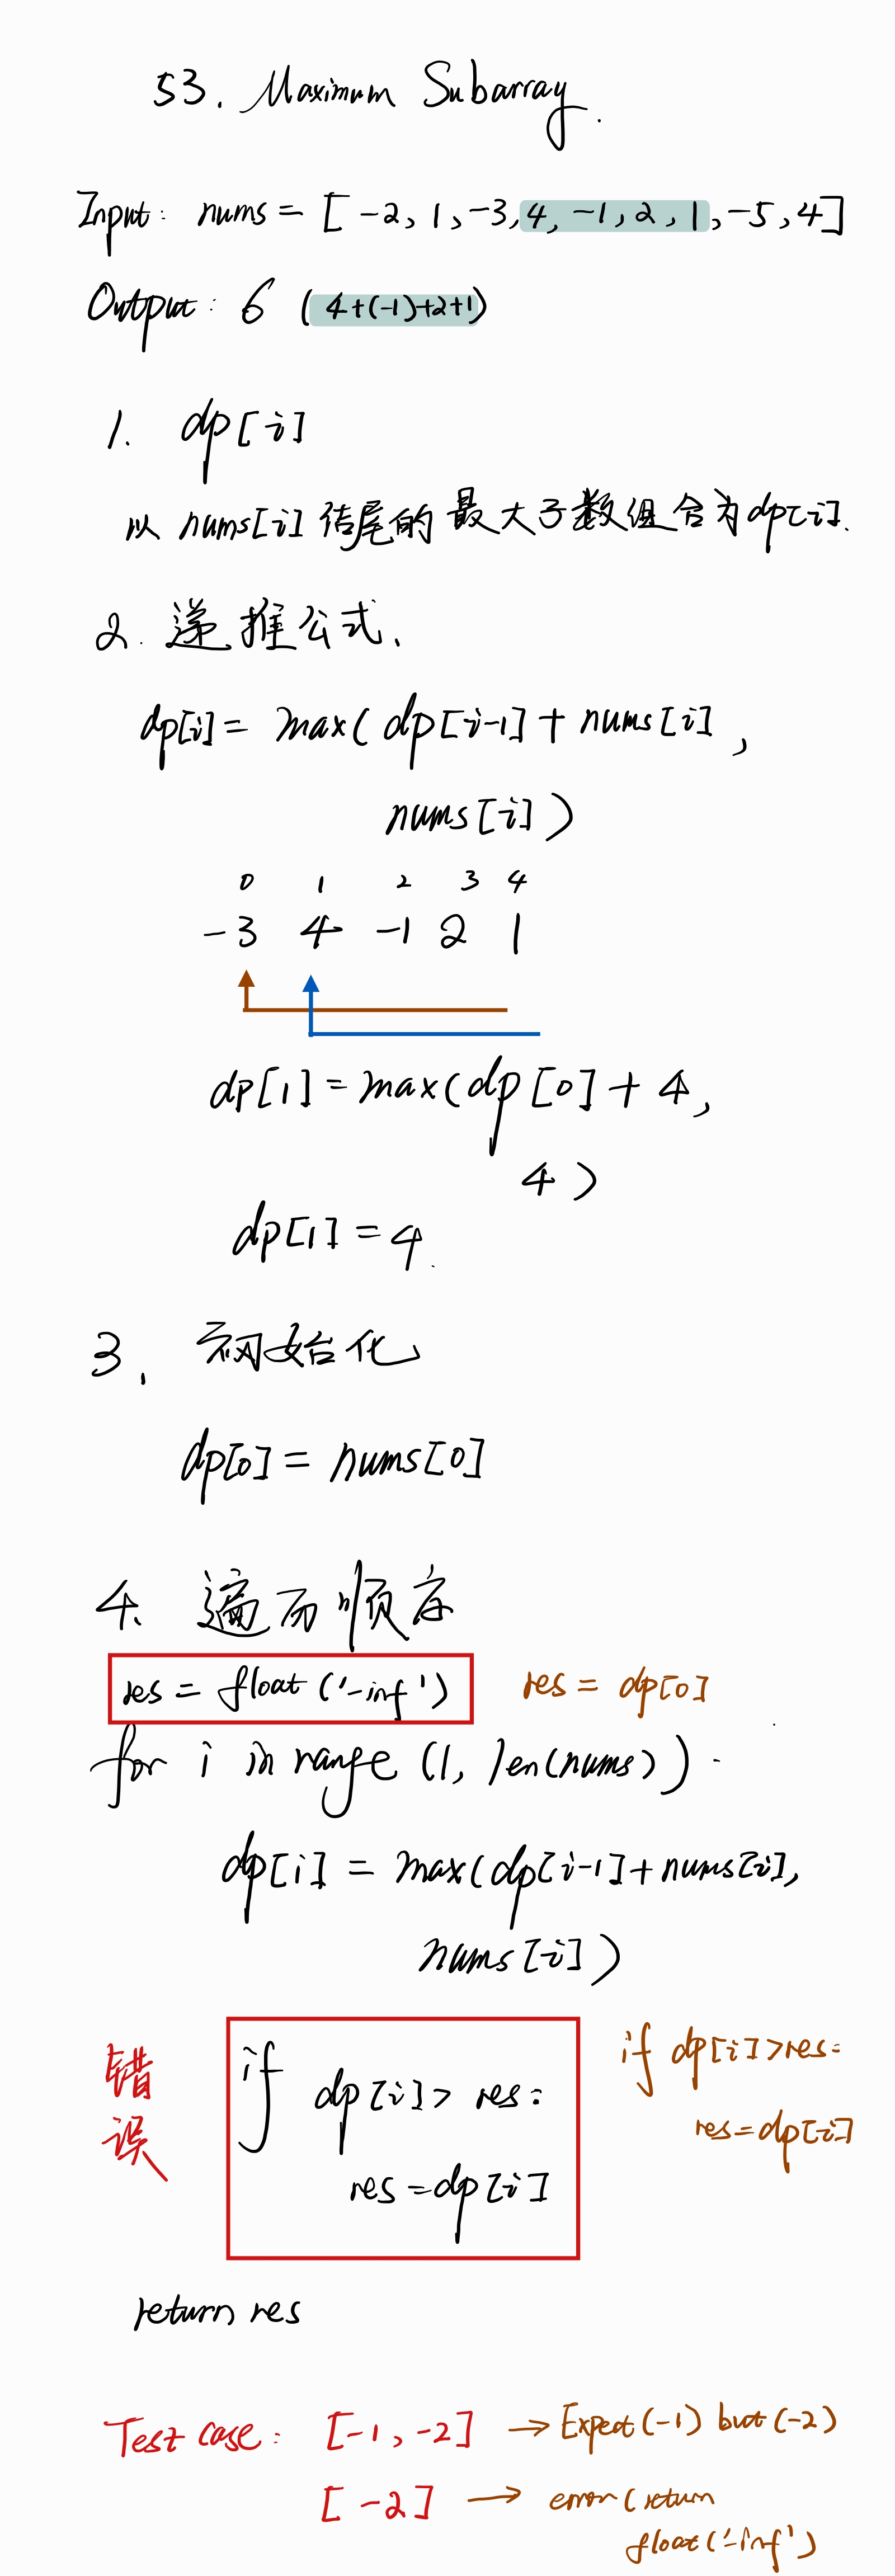 53. Maximum Subarray.
Input: nums = [-2, 1, -3, 4, -1, 2, 1, -5, 4]
Output: 6 (4+(-1)+2+1)
1. dp[i]
以 nums[i] 结尾的最大子数组合为dp[i].
2. 递推公式.
dp[i] = max(dp[i-1] + nums[i],
nums[i])
0 1 2 3 4
-3 4 -1 2 1
dp[1] = max(dp[0] + 4,
4)
dp[1] = 4.
3. 初始化
dp[0] = nums[0]
4. 遍历顺序
res = float('-inf') res = dp[0]
for i in range(1, len(nums)) -
dp[i] = max(dp[i-1]+nums[i],
nums[i])
错误
if dp[i] > res:
res = dp[i]
if dp[i]>res:
res=dp[i]
return res
Test case: [-1, -2] → Expect(-1) but(-2)
[-2] → error (return
float('-inf')